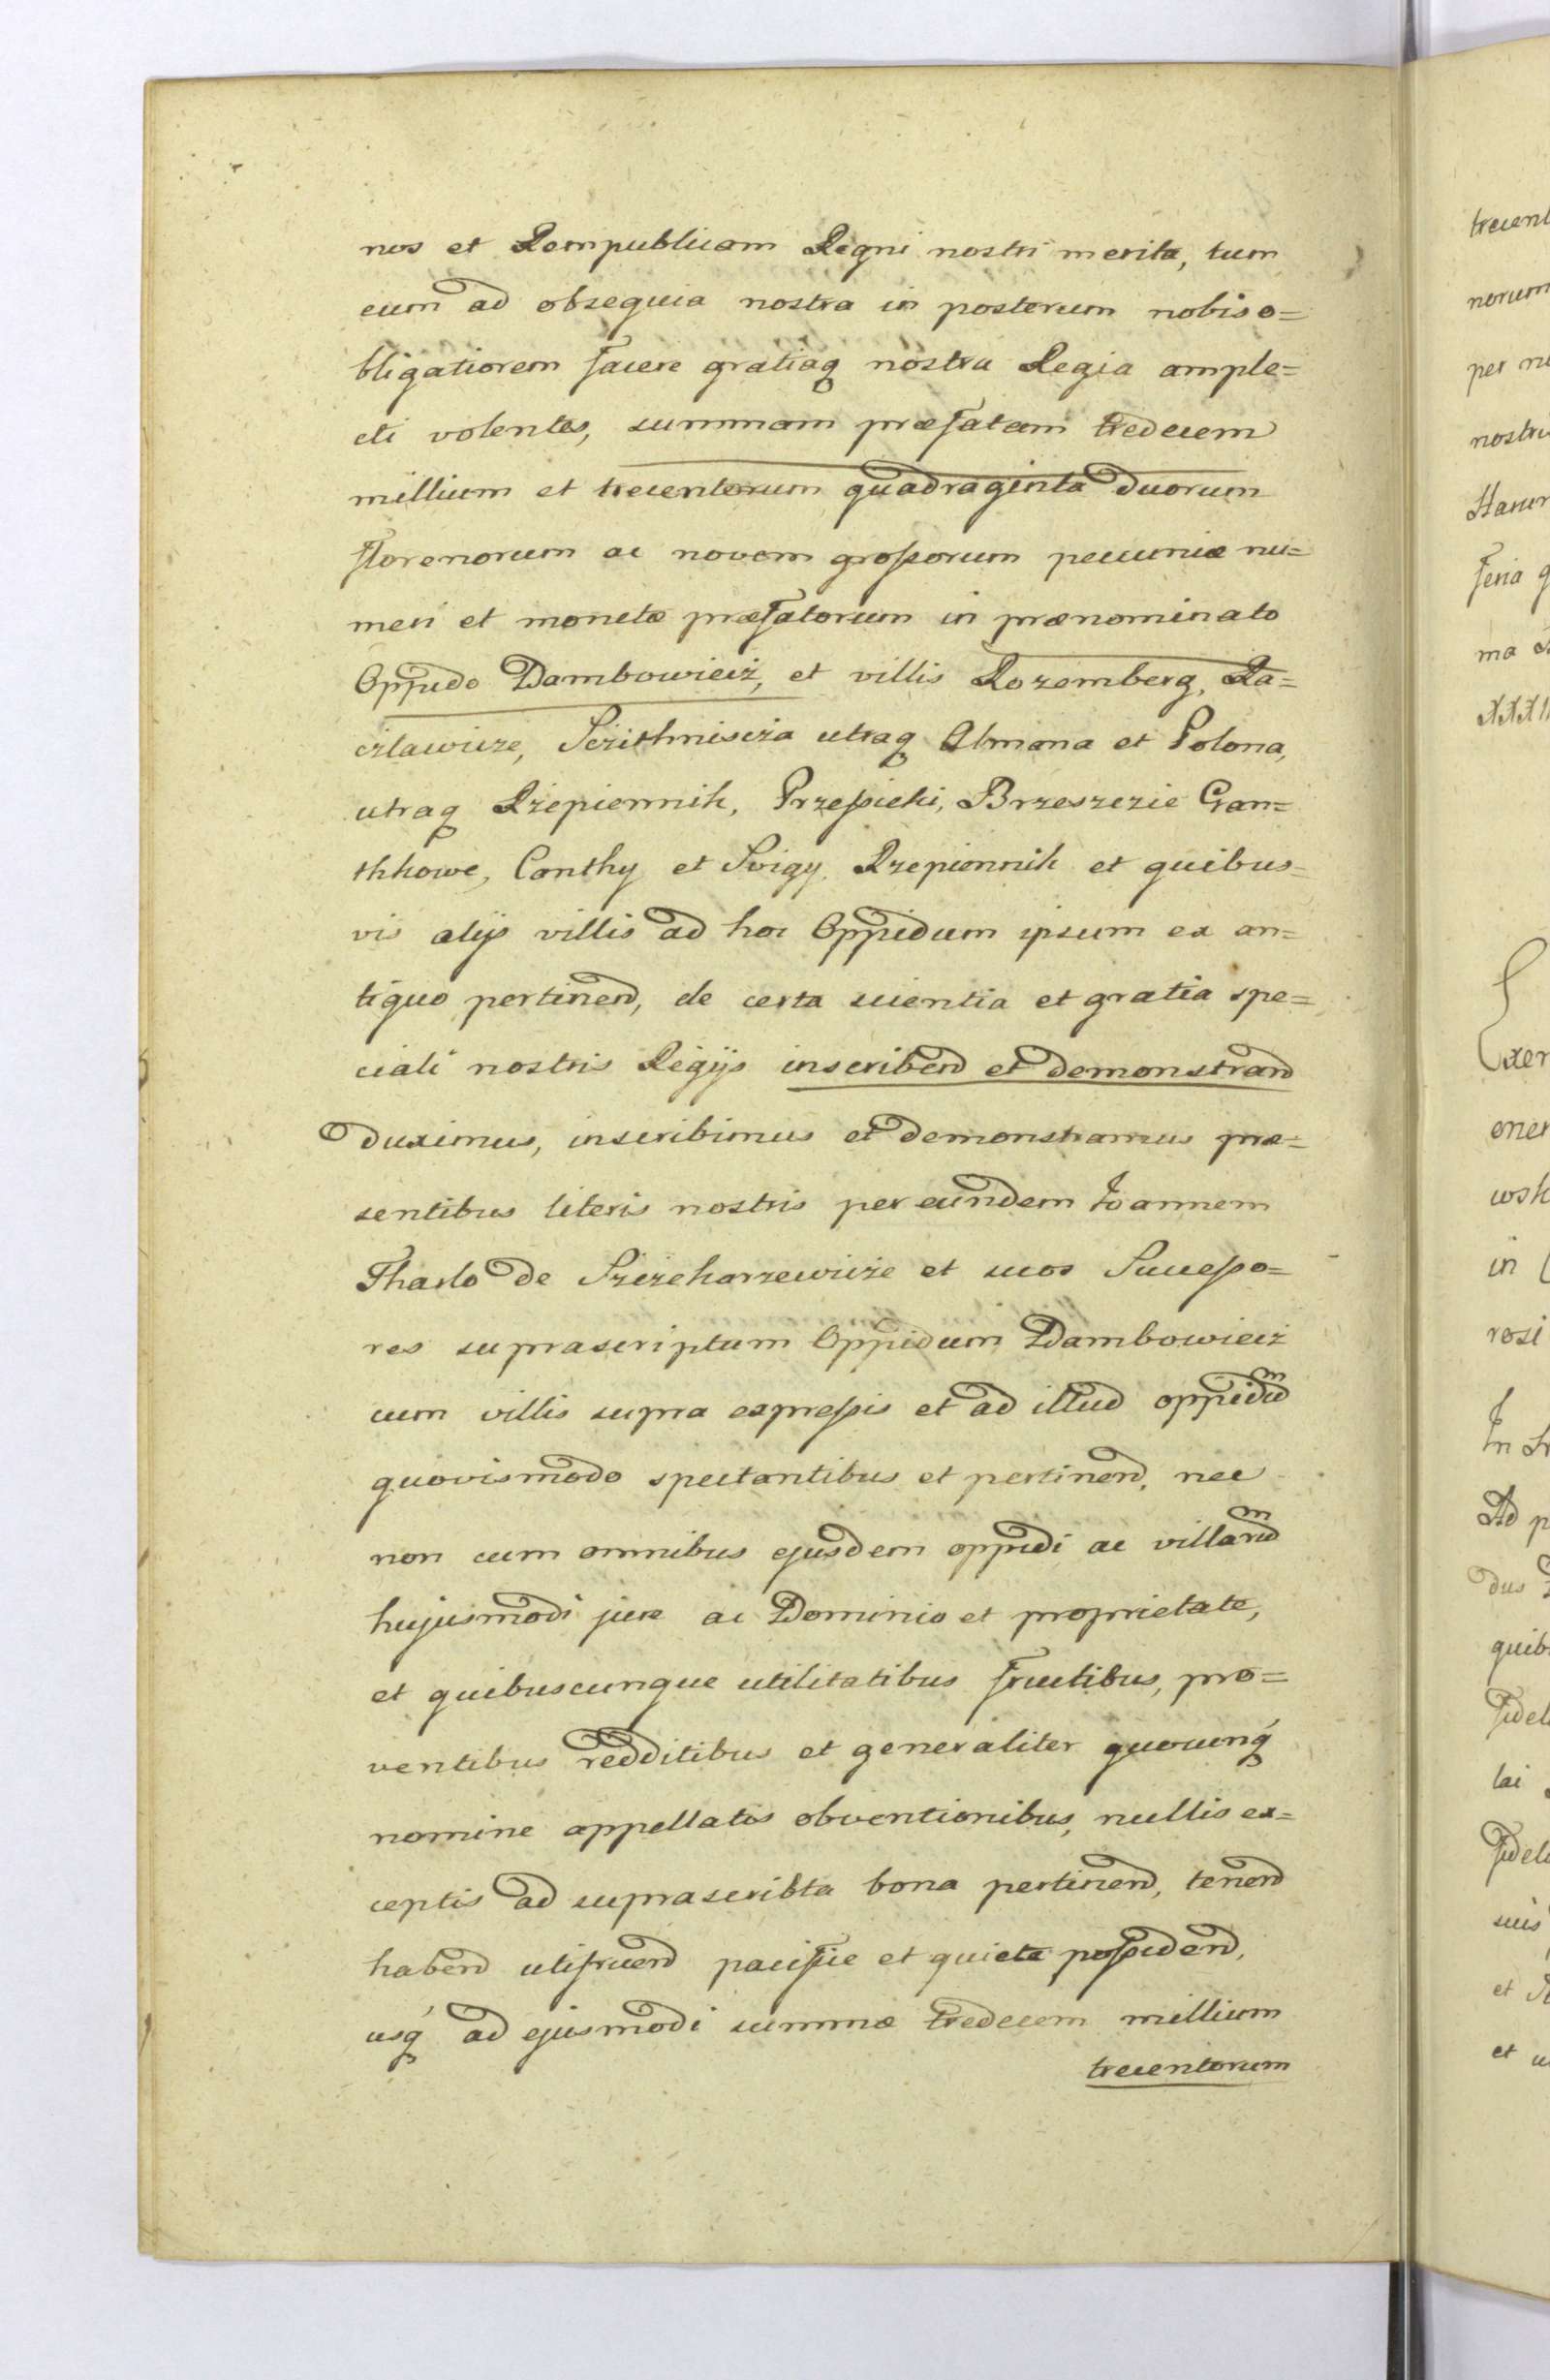 nos et Rempublicam Regni nostri merita, tum
eum ad obsequia nostra in posterum nobis o=
bligatiorem facere gratiaq nostra Regia ample=
cti volentes, summam præfatam tredecem
millium et trecentorum quadraginta duorum
florenorum ac novem grossorum pecuniæ nu=
meri et monetæ præfatorum in prænominato
Oppido Dambowiecz, et villis Rozemberg, Ra=
czlawicze, Sczithniscza utraq Almana et Polona,
utraq Rzepiennik, Przessieki, Brzesczezie Gran=
thkowe, Conthy et Svigy Rzepiennik et quibus=
vis alijs villis ad hoc Oppidum ipsum ex an=
tiquo pertinend, de certa scientia et gratia spe=
ciali nostris Regijs inscribend et demonstrand
duximus, inscribimus et demonstramus præ=
sentibus literis nostris per eundem Joannem
Tharlo de Sczeкarzewicze et suos Successo=
res suprascriptum Oppidum Dambowiecz
cum villis supra expressis et ad illud oppidũ
quovismodo spectantibus et pertinend, nec
non cum omnibus ejusdem oppidi ac villarũ
hujusmodi jure ac Dominio et proprietate,
et quibuscunque utilitatibus fructibus, pro=
ventibus redditibus et generaliter quocunq́
nomine appellatis obventionibus, nullis ex=
ceptis ad suprascribta bona pertinend, tenend
habend utifruend pacifice et quiete possidend,
usq́ ad ejusmodi summæ tredecem millium
trecentorum
trecent
norum
per n
nostr
Harum
feria q
ma
XXXII
Exer
oner
wsk
in
rosi
In
Ad p
dus
quib
fidel
lai
fidel
suis
et
et u